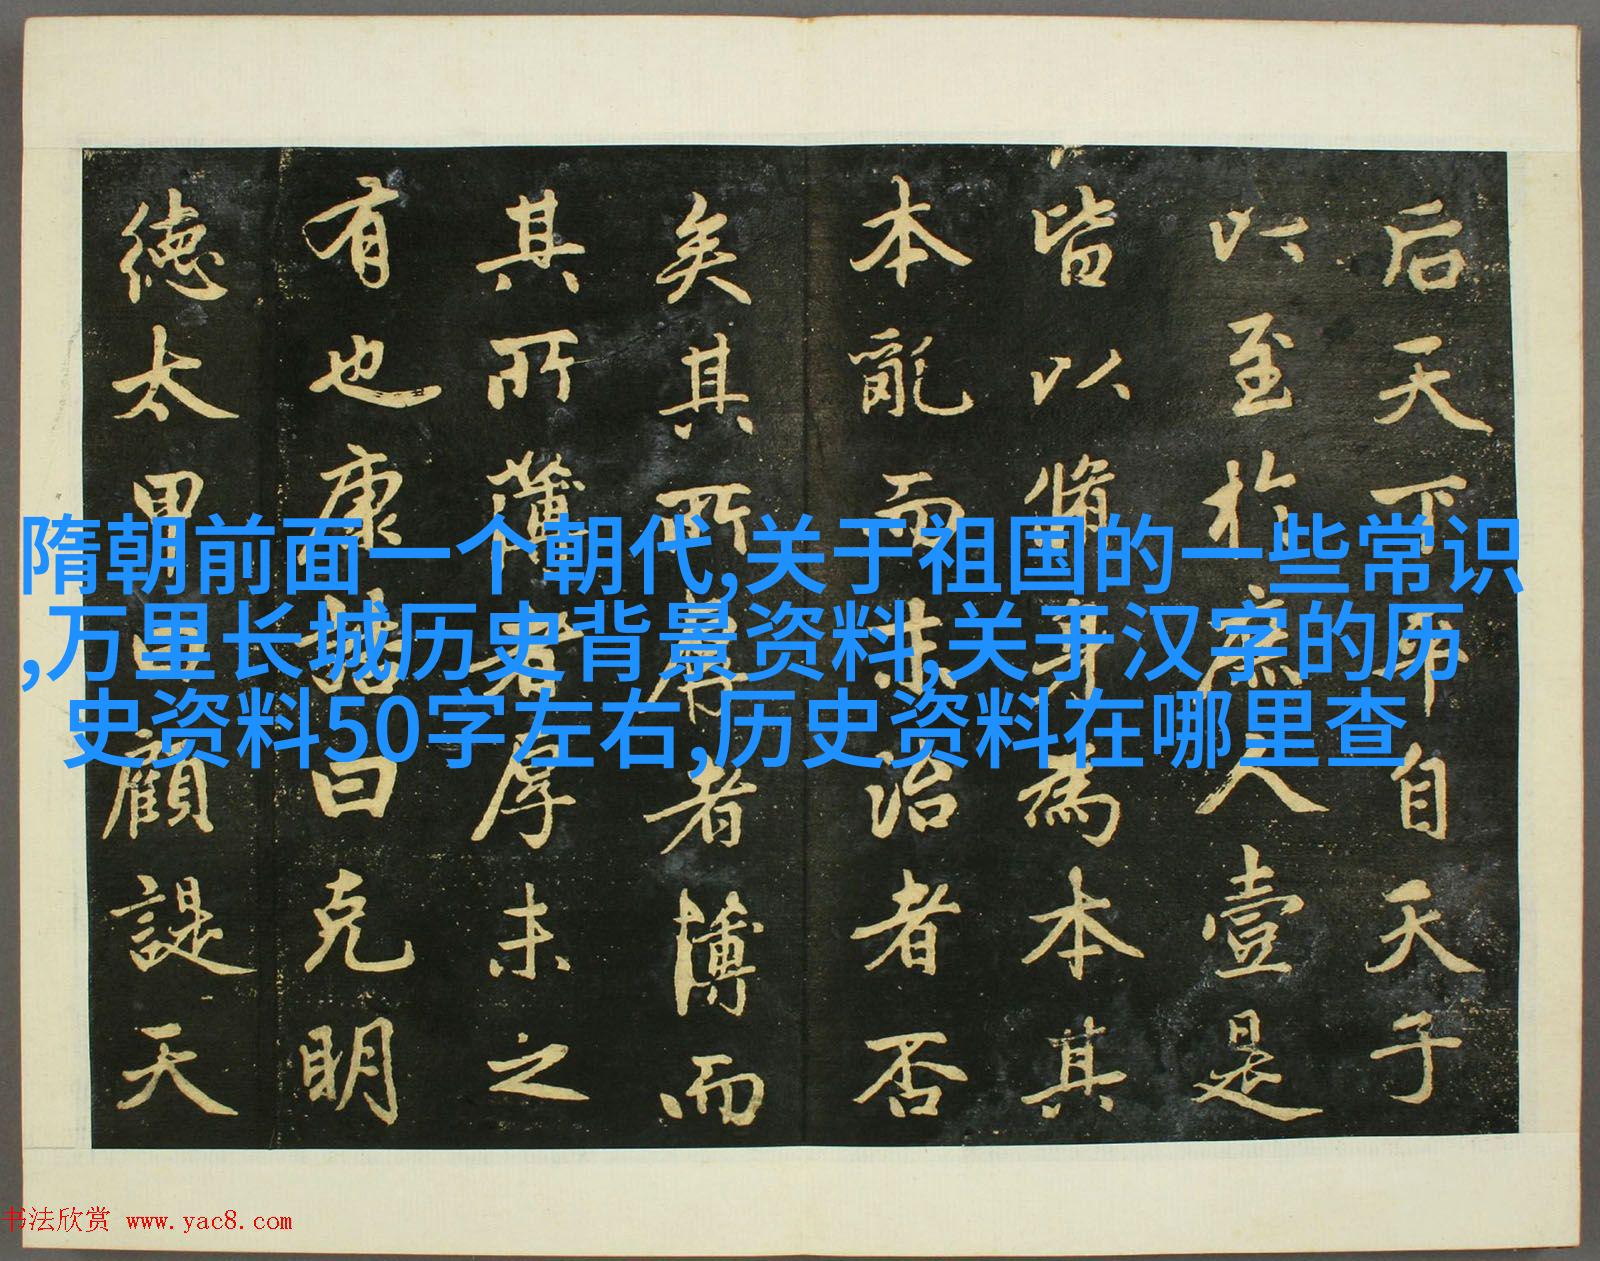 隋朝前面一个朝代,关于祖国的一些常识
,万里长城历史背景资料,关于汉字的历
史资料50字左右,历史资料在哪里查
后天下平自天子
以至於庶人壹是
皆以脩身為本其
本亂而末治者否
矣其所厚者薄而
其所薄者厚未之
有也康誥曰克明
德太甲曰顧諟天
书法欣赏 www.yac8.com